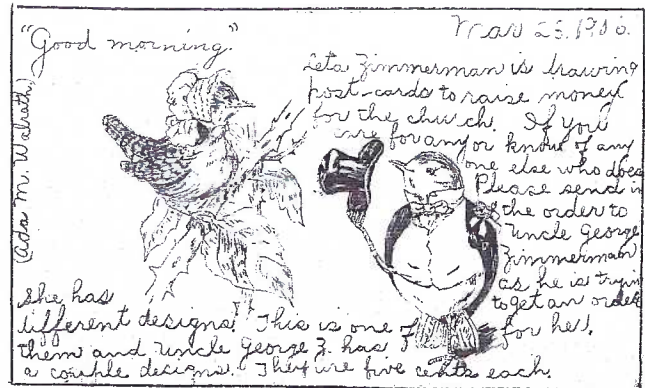 "Good morning."
Mar 25. 1906.
Leta Zimmerman is drawing
post-cards to raise money
for the church. If you
care for any or know of any
one else who does
Please send in
the order to
Uncle George
Zimmerman
as he is tryin
to get an order
for her.
She has
different designs. This is one of
them and Uncle George Z. has
a couple designs. They are five cents each.
(Ada M. Walrath)